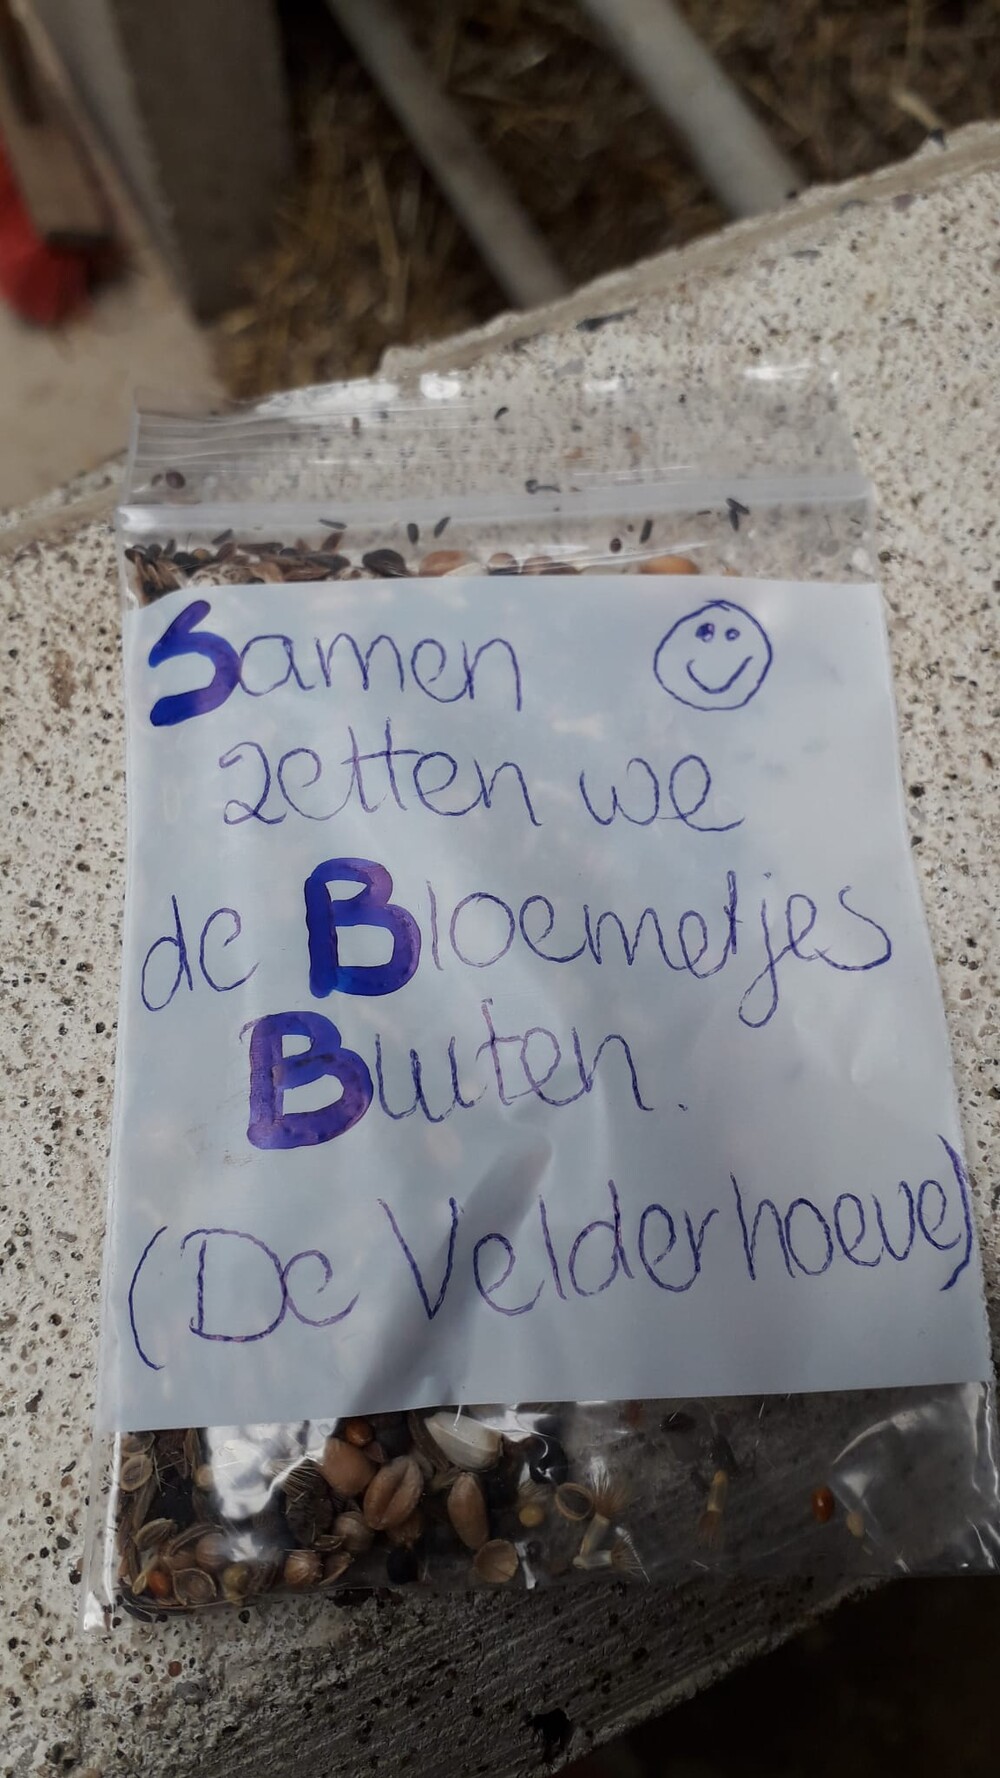 Samen
zetten we
de Bloemetjes
Buiten.
(De Velderhoeve)